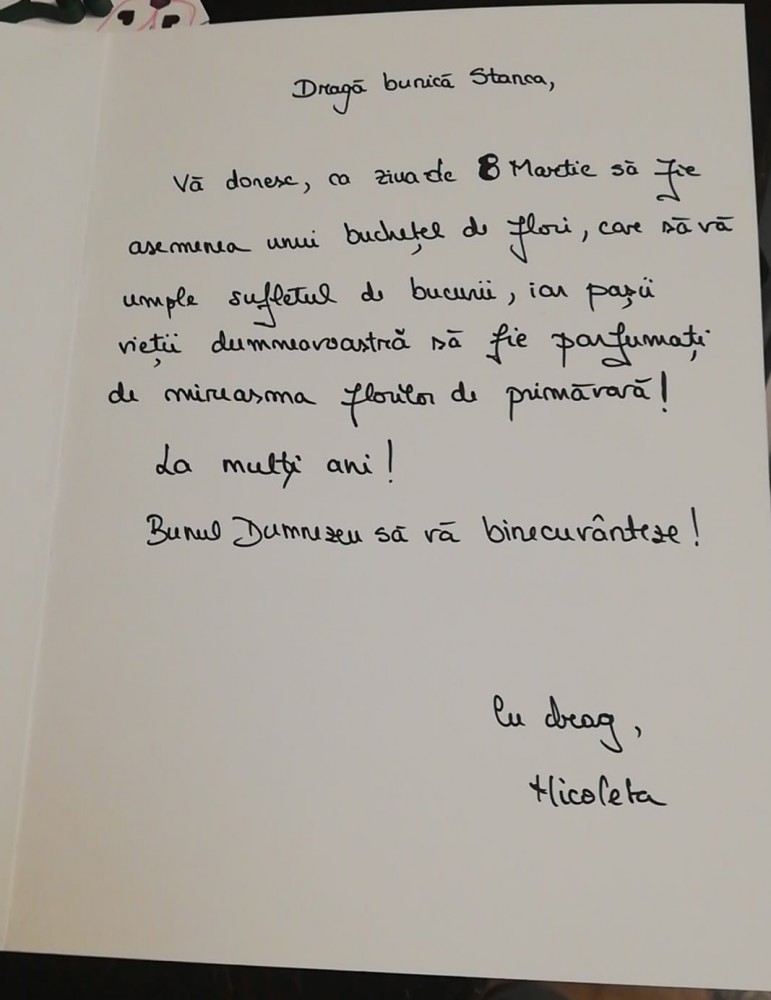 Dragă bunică Stanca,
Vă doresc, ca ziua de 8 Martie să fie
asemenea unui buchețel de flori, care să vă
umple sufletul de bucurii, iar pașii
vieții dumneavoastră să fie parfumați
de mireasma florilor de primăvară!
La mulți ani!
Bunul Dumnezeu să vă binecuvânteze!
Cu drag,
Nicoleta